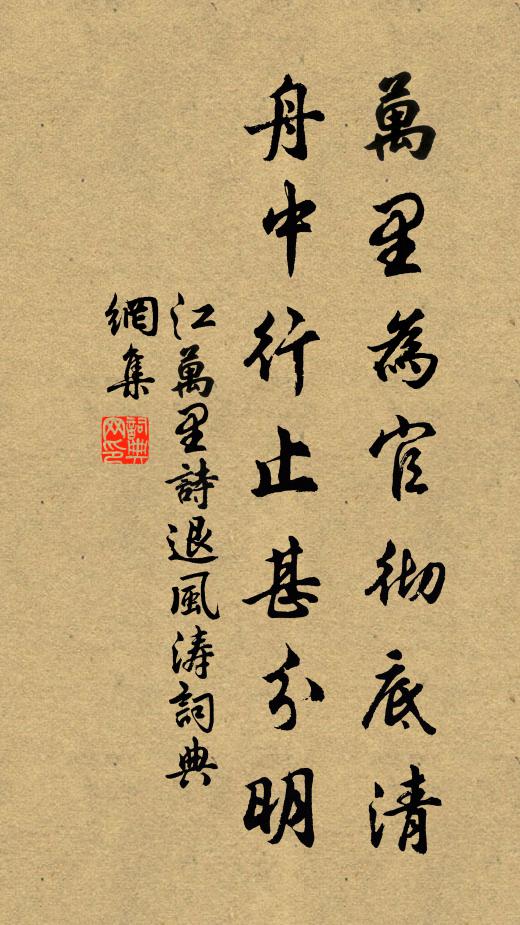 萬里為官彻底清
舟中行止甚分明
江萬里詩退風涛詞典
網集
詞典
网印